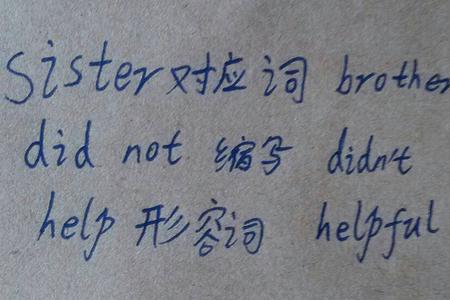 Sister对应词 brother
did not 缩写 didn't
help 形容词 helpful